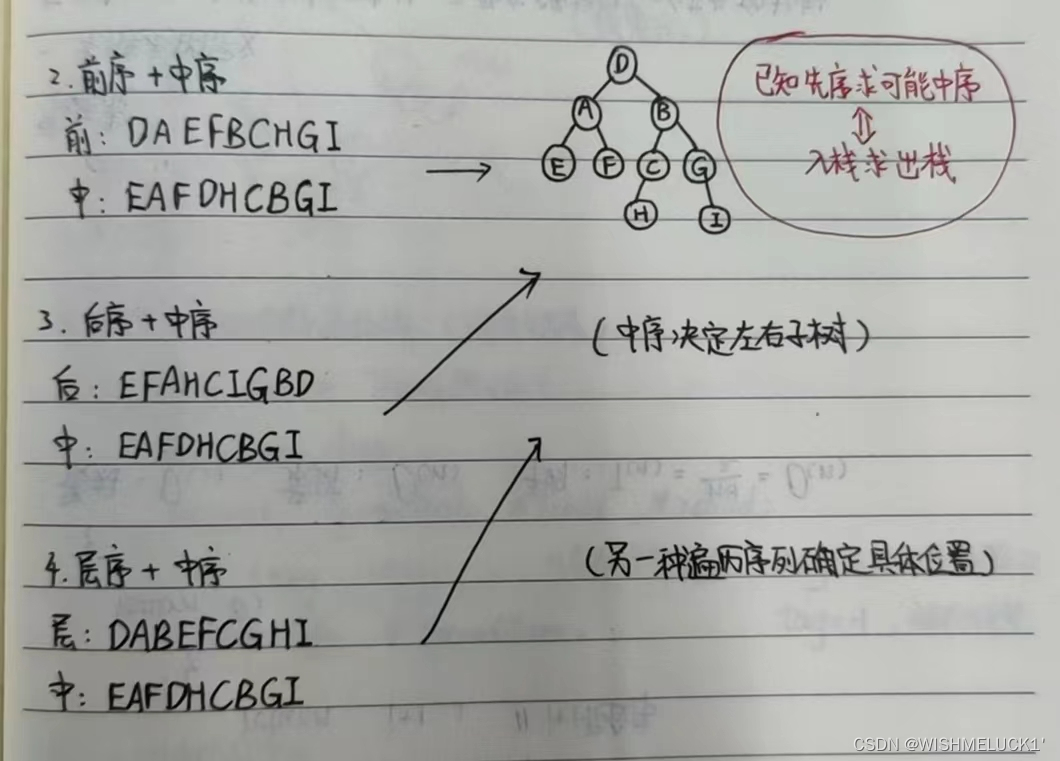 2. 前序 + 中序
前: DAEFBCHGI
中: EAFDHCBGI
D
A B
E F C G
H I
已知先序求可能中序
⇕
入栈求出栈
3. 后序 + 中序
后: EFAHCIGBD
中: EAFDHCBGI
(中序决定左右子树)
4. 层序 + 中序
层: DABEFCGHI
中: EAFDHCBGI
(另一种遍历序列确定具体位置)
CSDN @WISHMELUCK1'